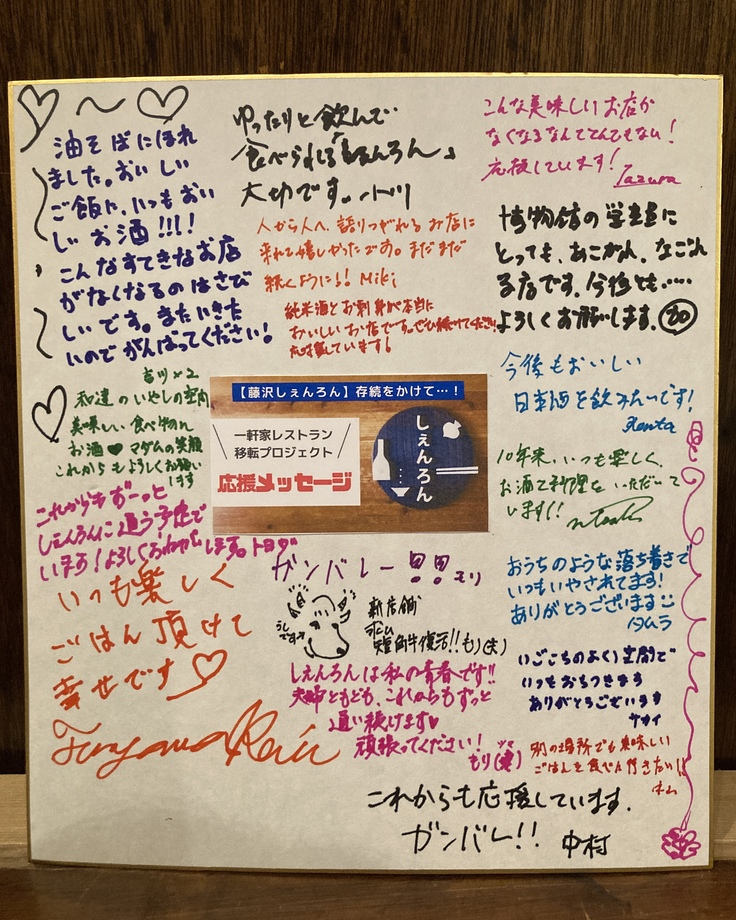 油そばにほれ
ました。おいしい
ご飯に、いつもおい
しいお酒!!!!
こんなすてきなお店
がなくなるのはさび
しいです。またいきた
いのでがんばってください!
ゆったりと飲んで
食べられる「しぇんろん」
大切です。
こんな美味しいお店が
なくなるなんてとんでもない!
応援しています!
人から人へ、語りつがれるお店に
来れて嬉しかったです。まだまだ
続くように!! Miki
純米酒とお刺身が本当に
おいしいお店です。
応援しています!
博物館の学芸員に
とっても、あこがれ、なごれ
る店です。今後とも....
よろしくお願いします。
×2
和達のいやしの空間
美味しい食べ物と
お酒♥マダムの笑顔
これからもよろしくお願い
します
【藤沢しぇんろん】存続をかけて…!
一軒家レストラン
移転プロジェクト
応援メッセージ
しぇんろん
今後もおいしい
日本酒を飲みたいです!
Kenta
10年来、いつも楽しく、
お酒と料理をいただいて
います!!
これからもずーっと
しぇんろんに通う予定で
います!よろしくおねがいします。トヨダ
ガンバレー!!もり
うしです→
新店舗
でも
短角牛復活!!もり(夫)
おうちのような落ち着きで
いつもいやされてます!
ありがとうございます
タムラ
いつも楽しく
ごはん頂けて
幸せです♡
しぇんろんは私の青春です!!
夫婦ともども、これからもずっと
通い続けます♥
頑張ってください!
もり(妻)
いごこちのよい空間で
いつもおちつきます
ありがとうございます
別の場所でも美味しい
ごはんを食べに行きたい!!
これからも応援しています。
ガンバレ!! 中村